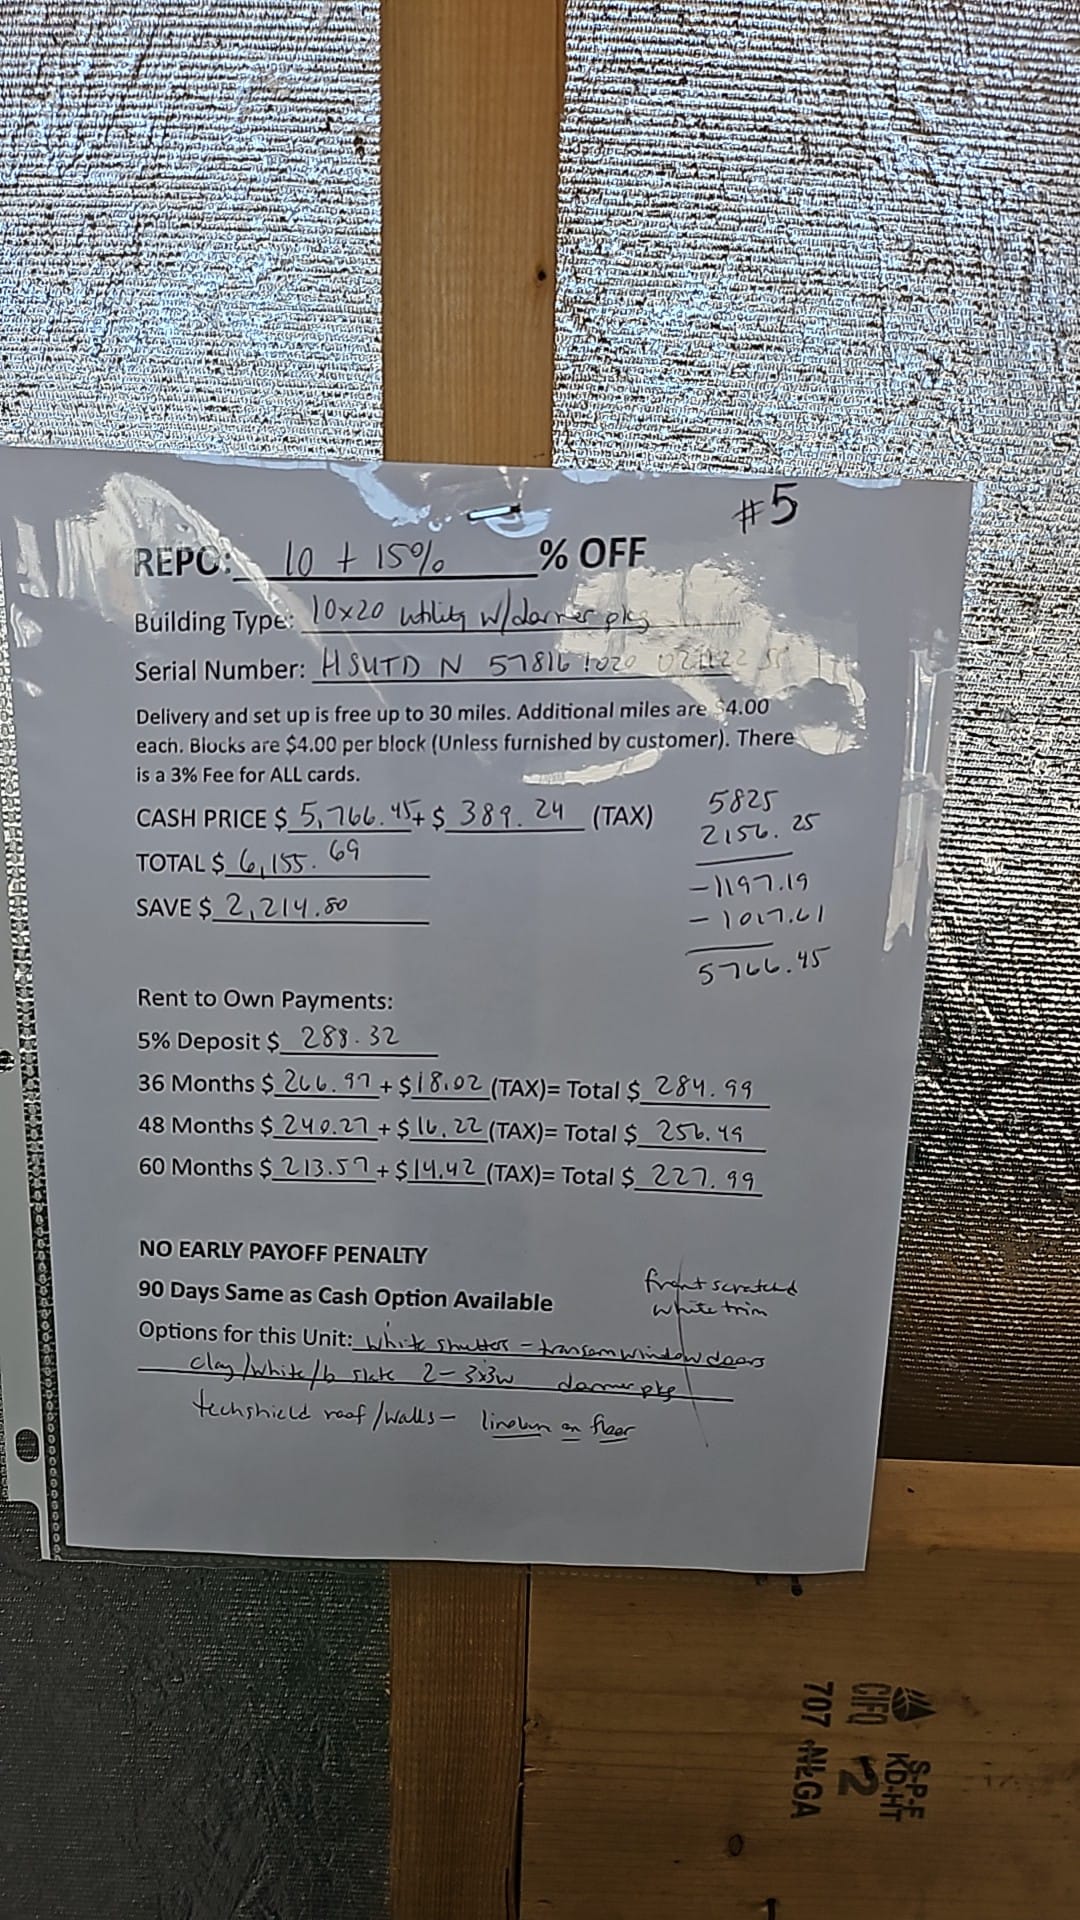 #5
REPO: 10 + 15% % OFF
Building Type: 10x20 utility w/dormer pkg
Serial Number: HSUTD N 57816 1020 021122
Delivery and set up is free up to 30 miles. Additional miles are $4.00
each. Blocks are $4.00 per block (Unless furnished by customer). There
is a 3% Fee for ALL cards.
CASH PRICE $ 5,766.45 + $ 389.24 (TAX)
TOTAL $ 6,155.69
SAVE $ 2,214.80
5825
2156.25
-1197.19
-1017.61
5766.45
Rent to Own Payments:
5% Deposit $ 288.32
36 Months $ 266.97 + $ 18.02 (TAX)= Total $ 284.99
48 Months $ 240.27 + $ 16.22 (TAX)= Total $ 256.49
60 Months $ 213.57 + $ 14.42 (TAX)= Total $ 227.99
NO EARLY PAYOFF PENALTY
90 Days Same as Cash Option Available
front scratched
white trim
Options for this Unit: white shutters - transom window doors
clay/white/b slate 2-3x3w dormer pkg
techshield roof/walls - linoleum on floor
S-P-F
KD-HT
CIFQ 2
707 NLGA